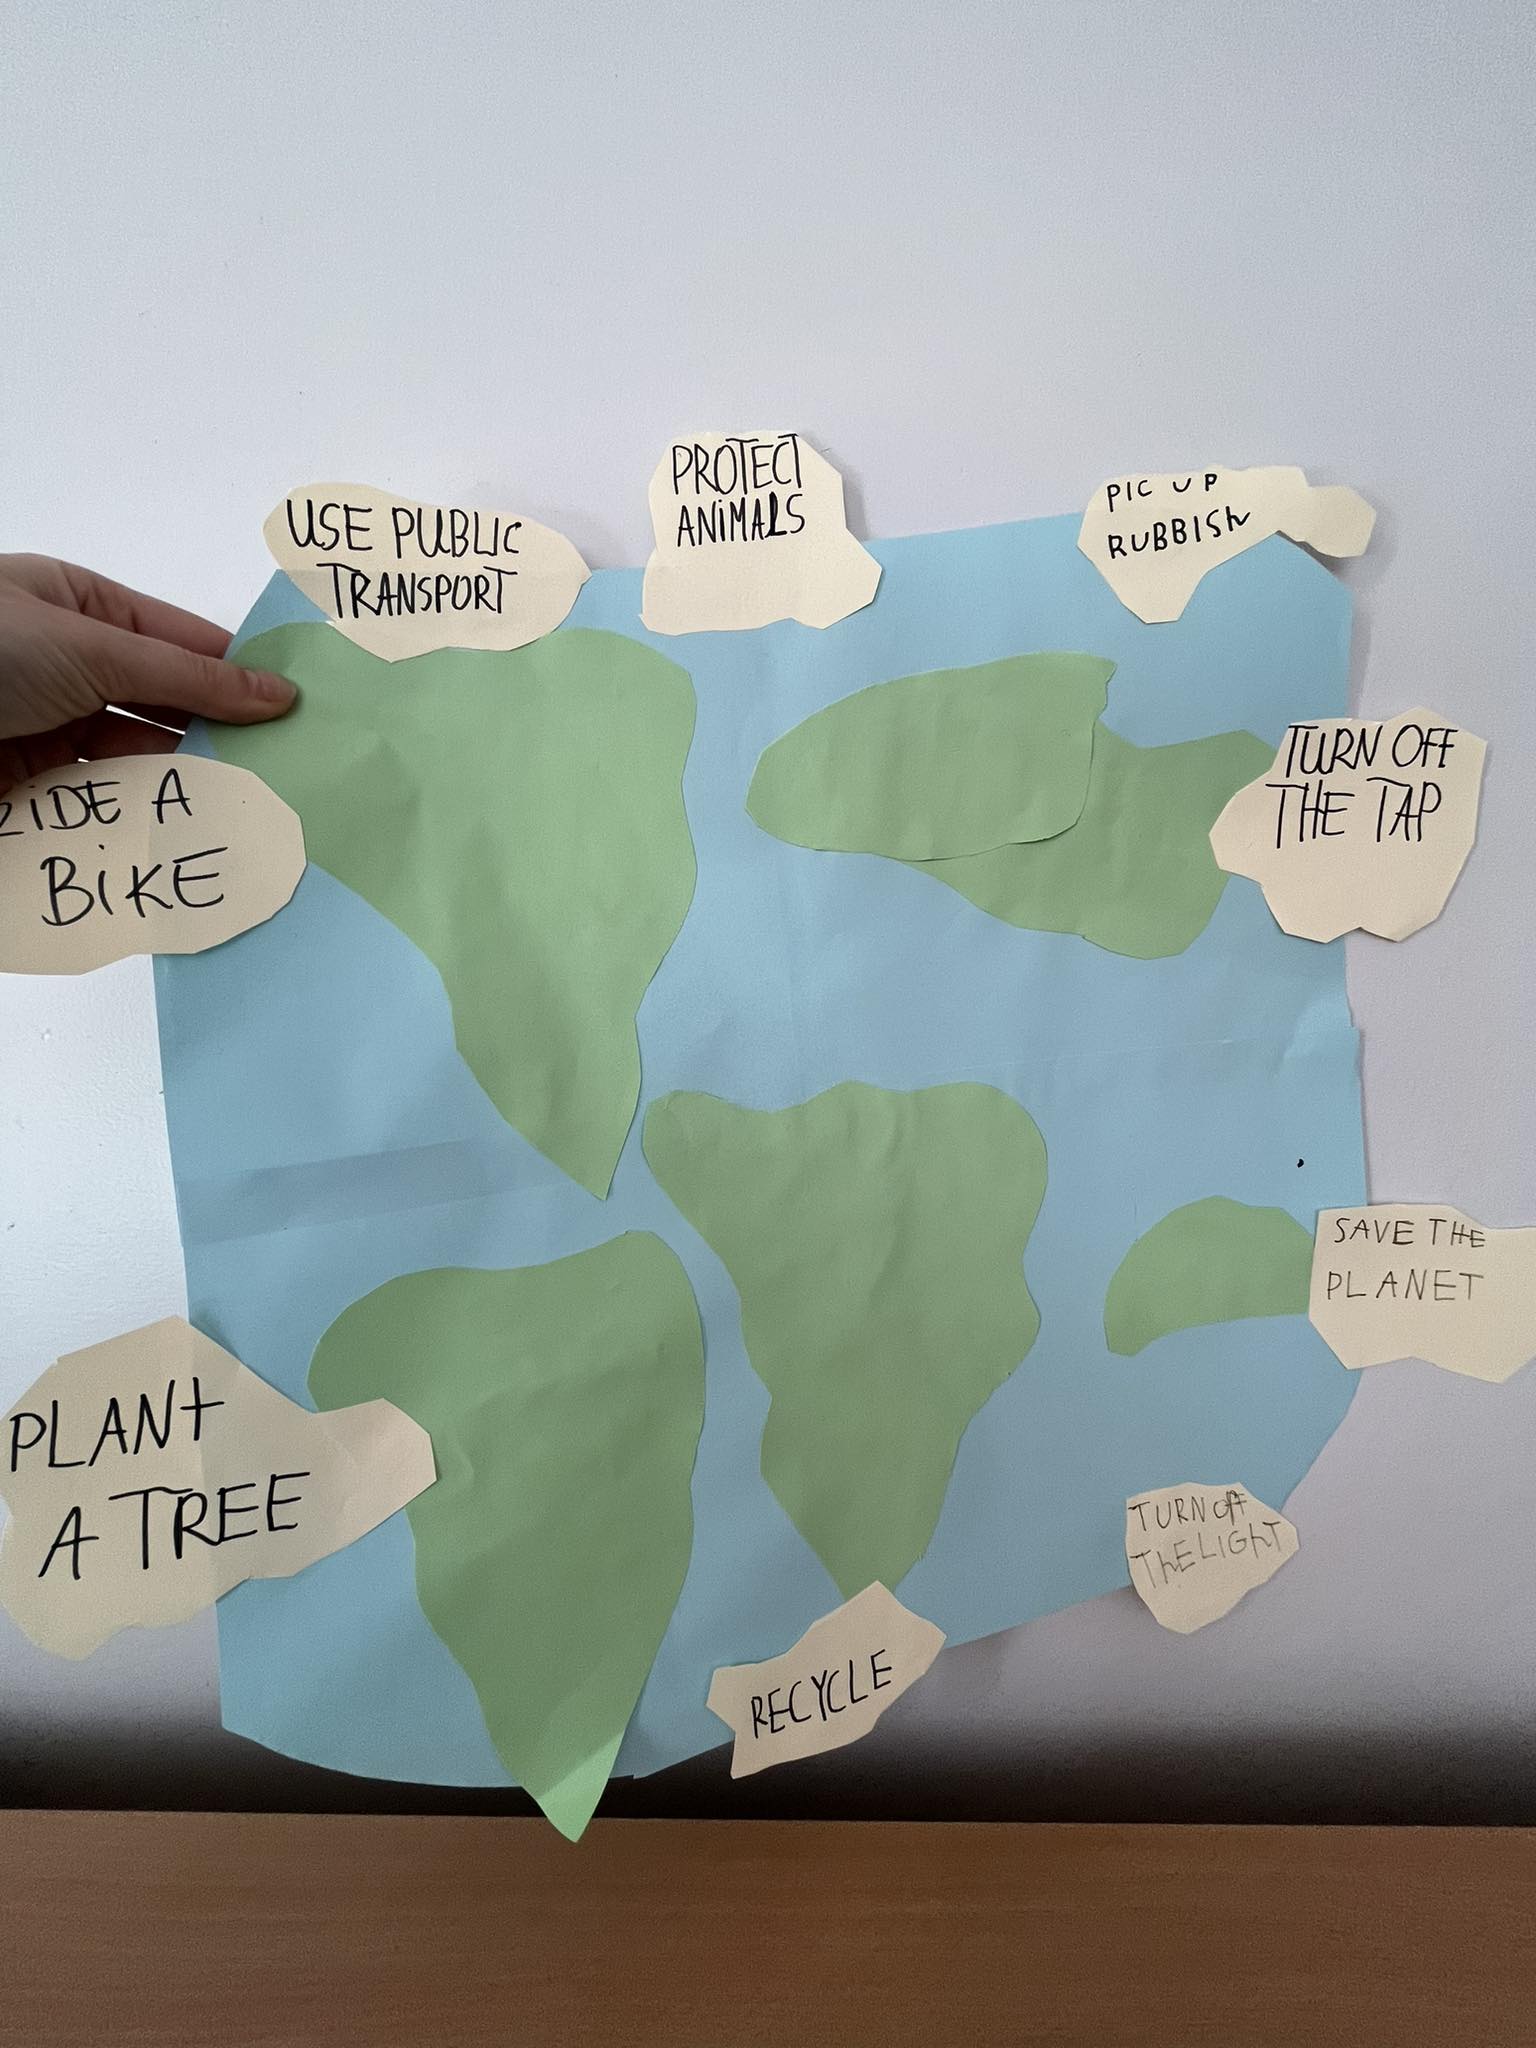 USE PUBLIC
TRANSPORT
PROTECT
ANiMALS
PIC UP
RUBBISh
RiDE A
BiKE
TURN OFF
THE TAP
SAVE THE
PLANET
PLANt
A TREE
TURN OFF
ThE LIGhT
RECYCLE